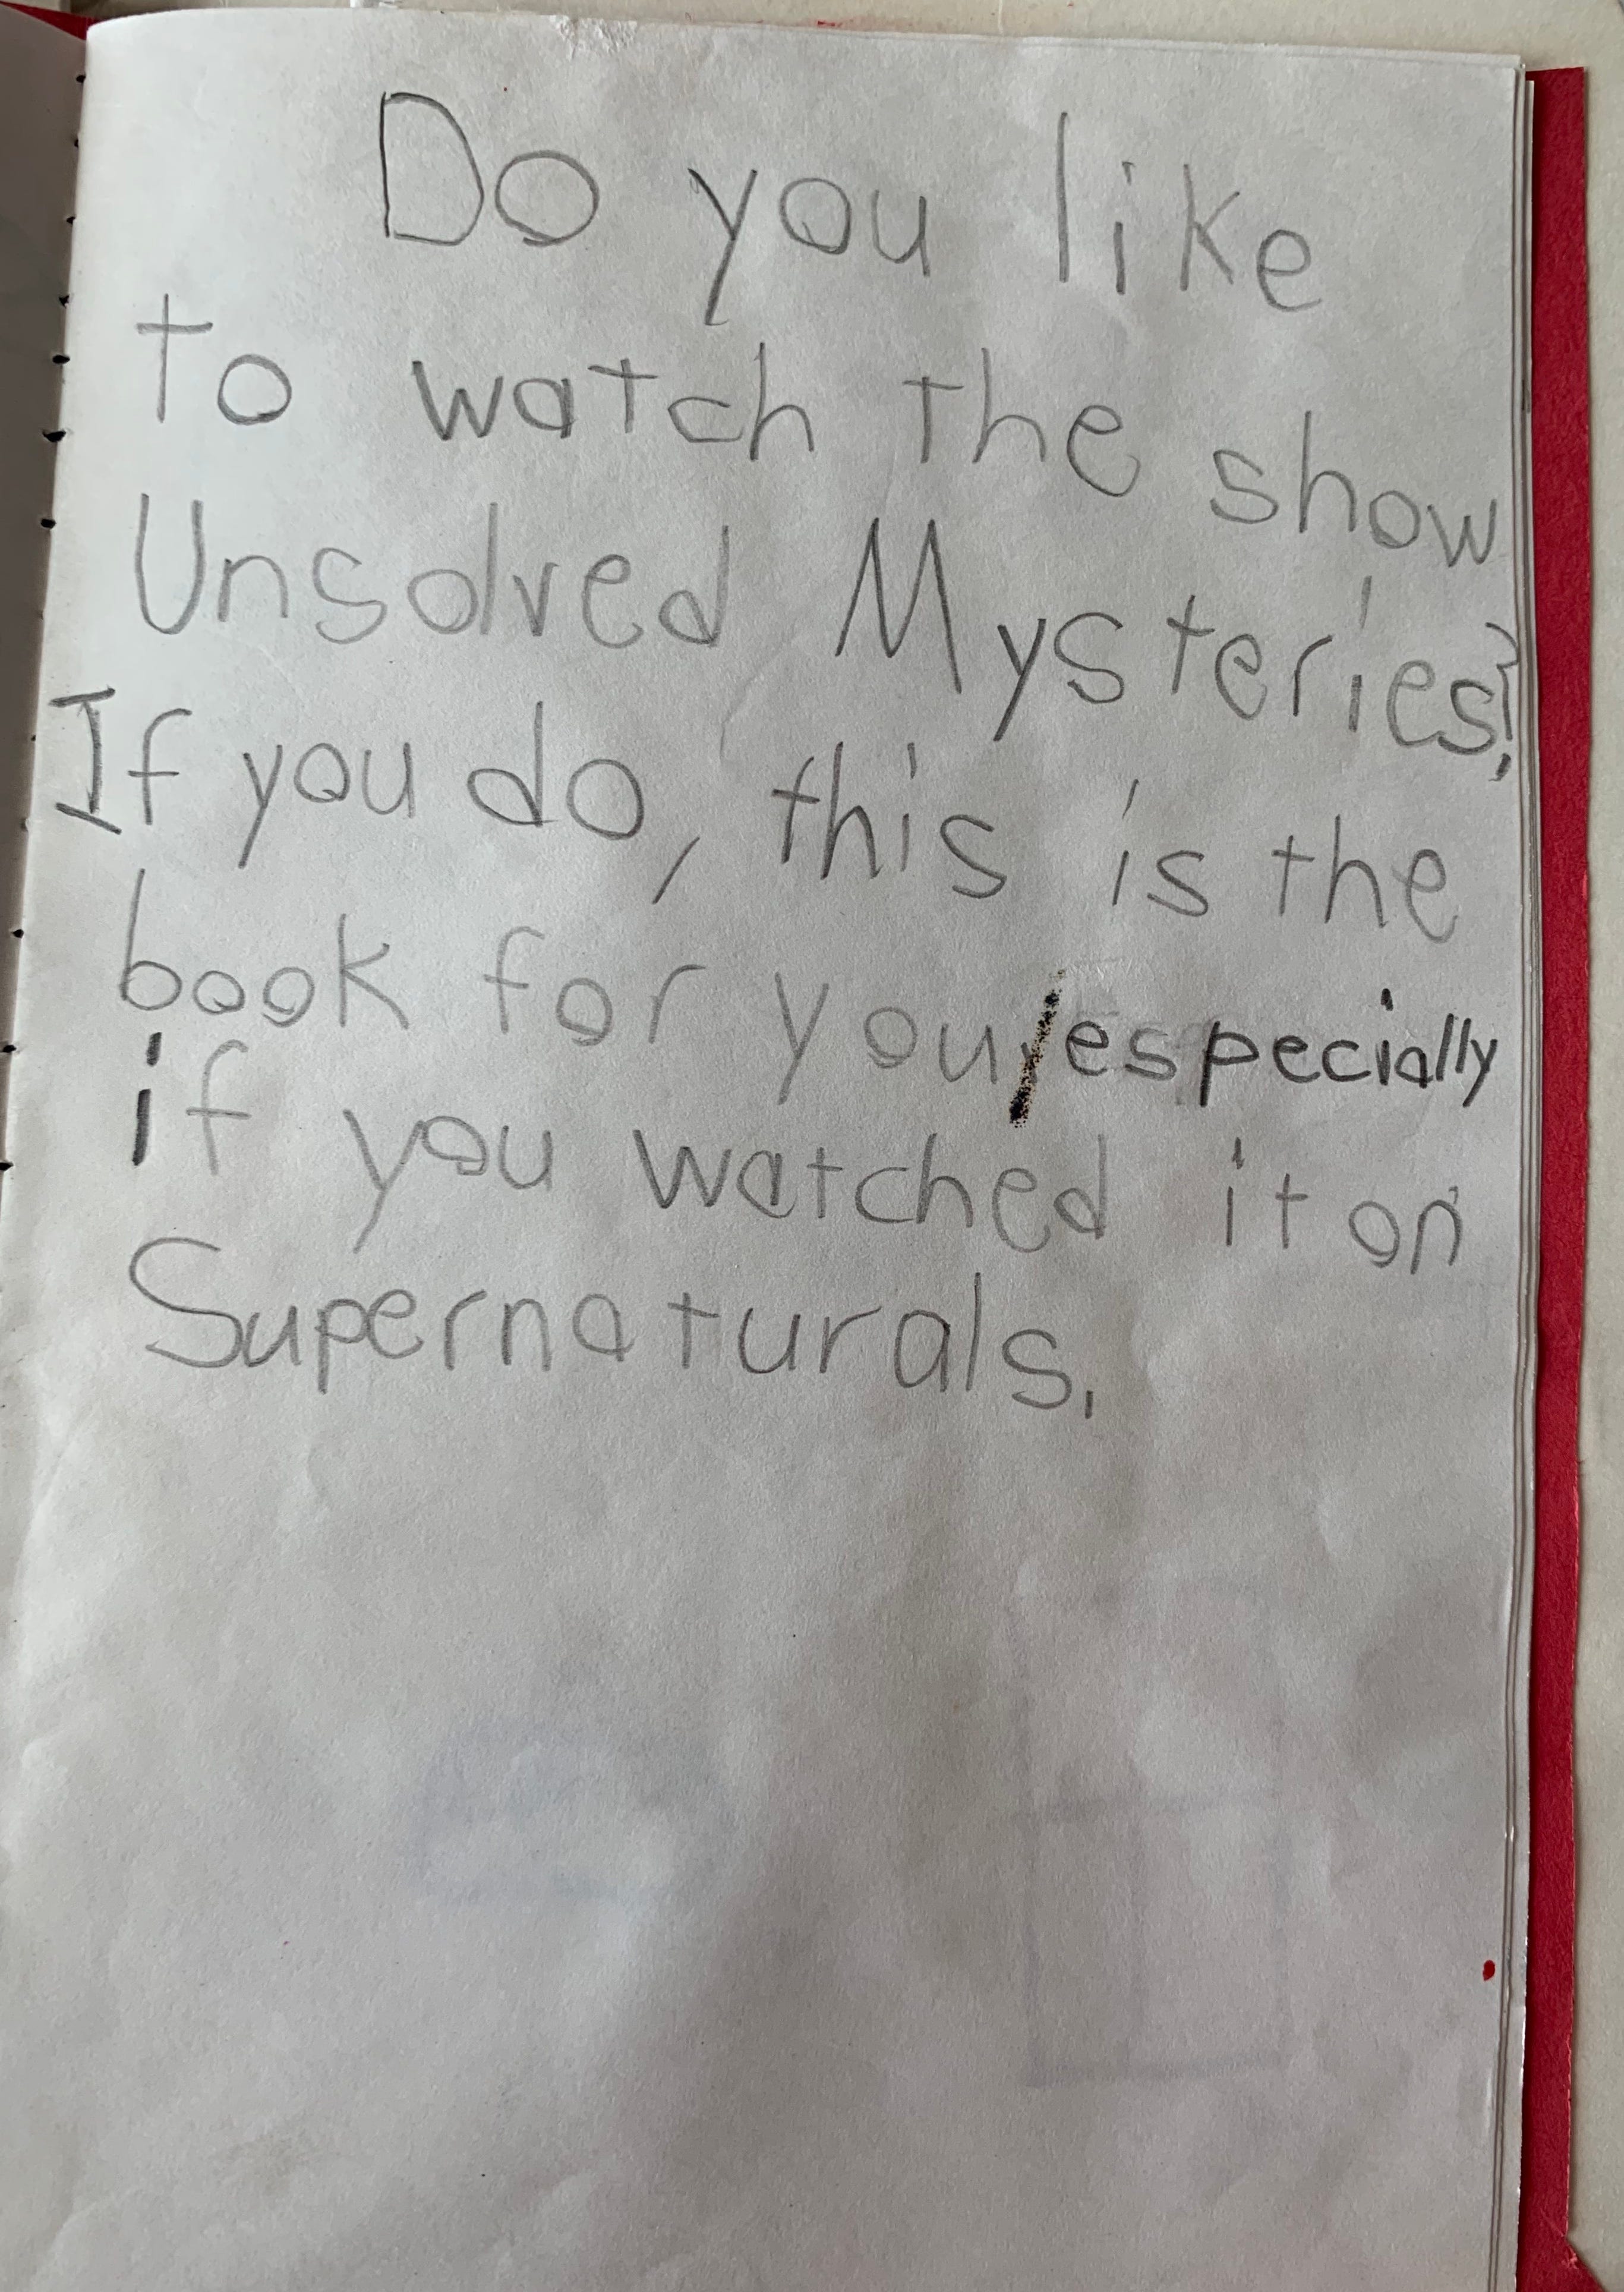 Do you like
to watch the show
Unsolved Mysteries?
If you do, this is the
book for you, especially
if you watched it on
Supernaturals.